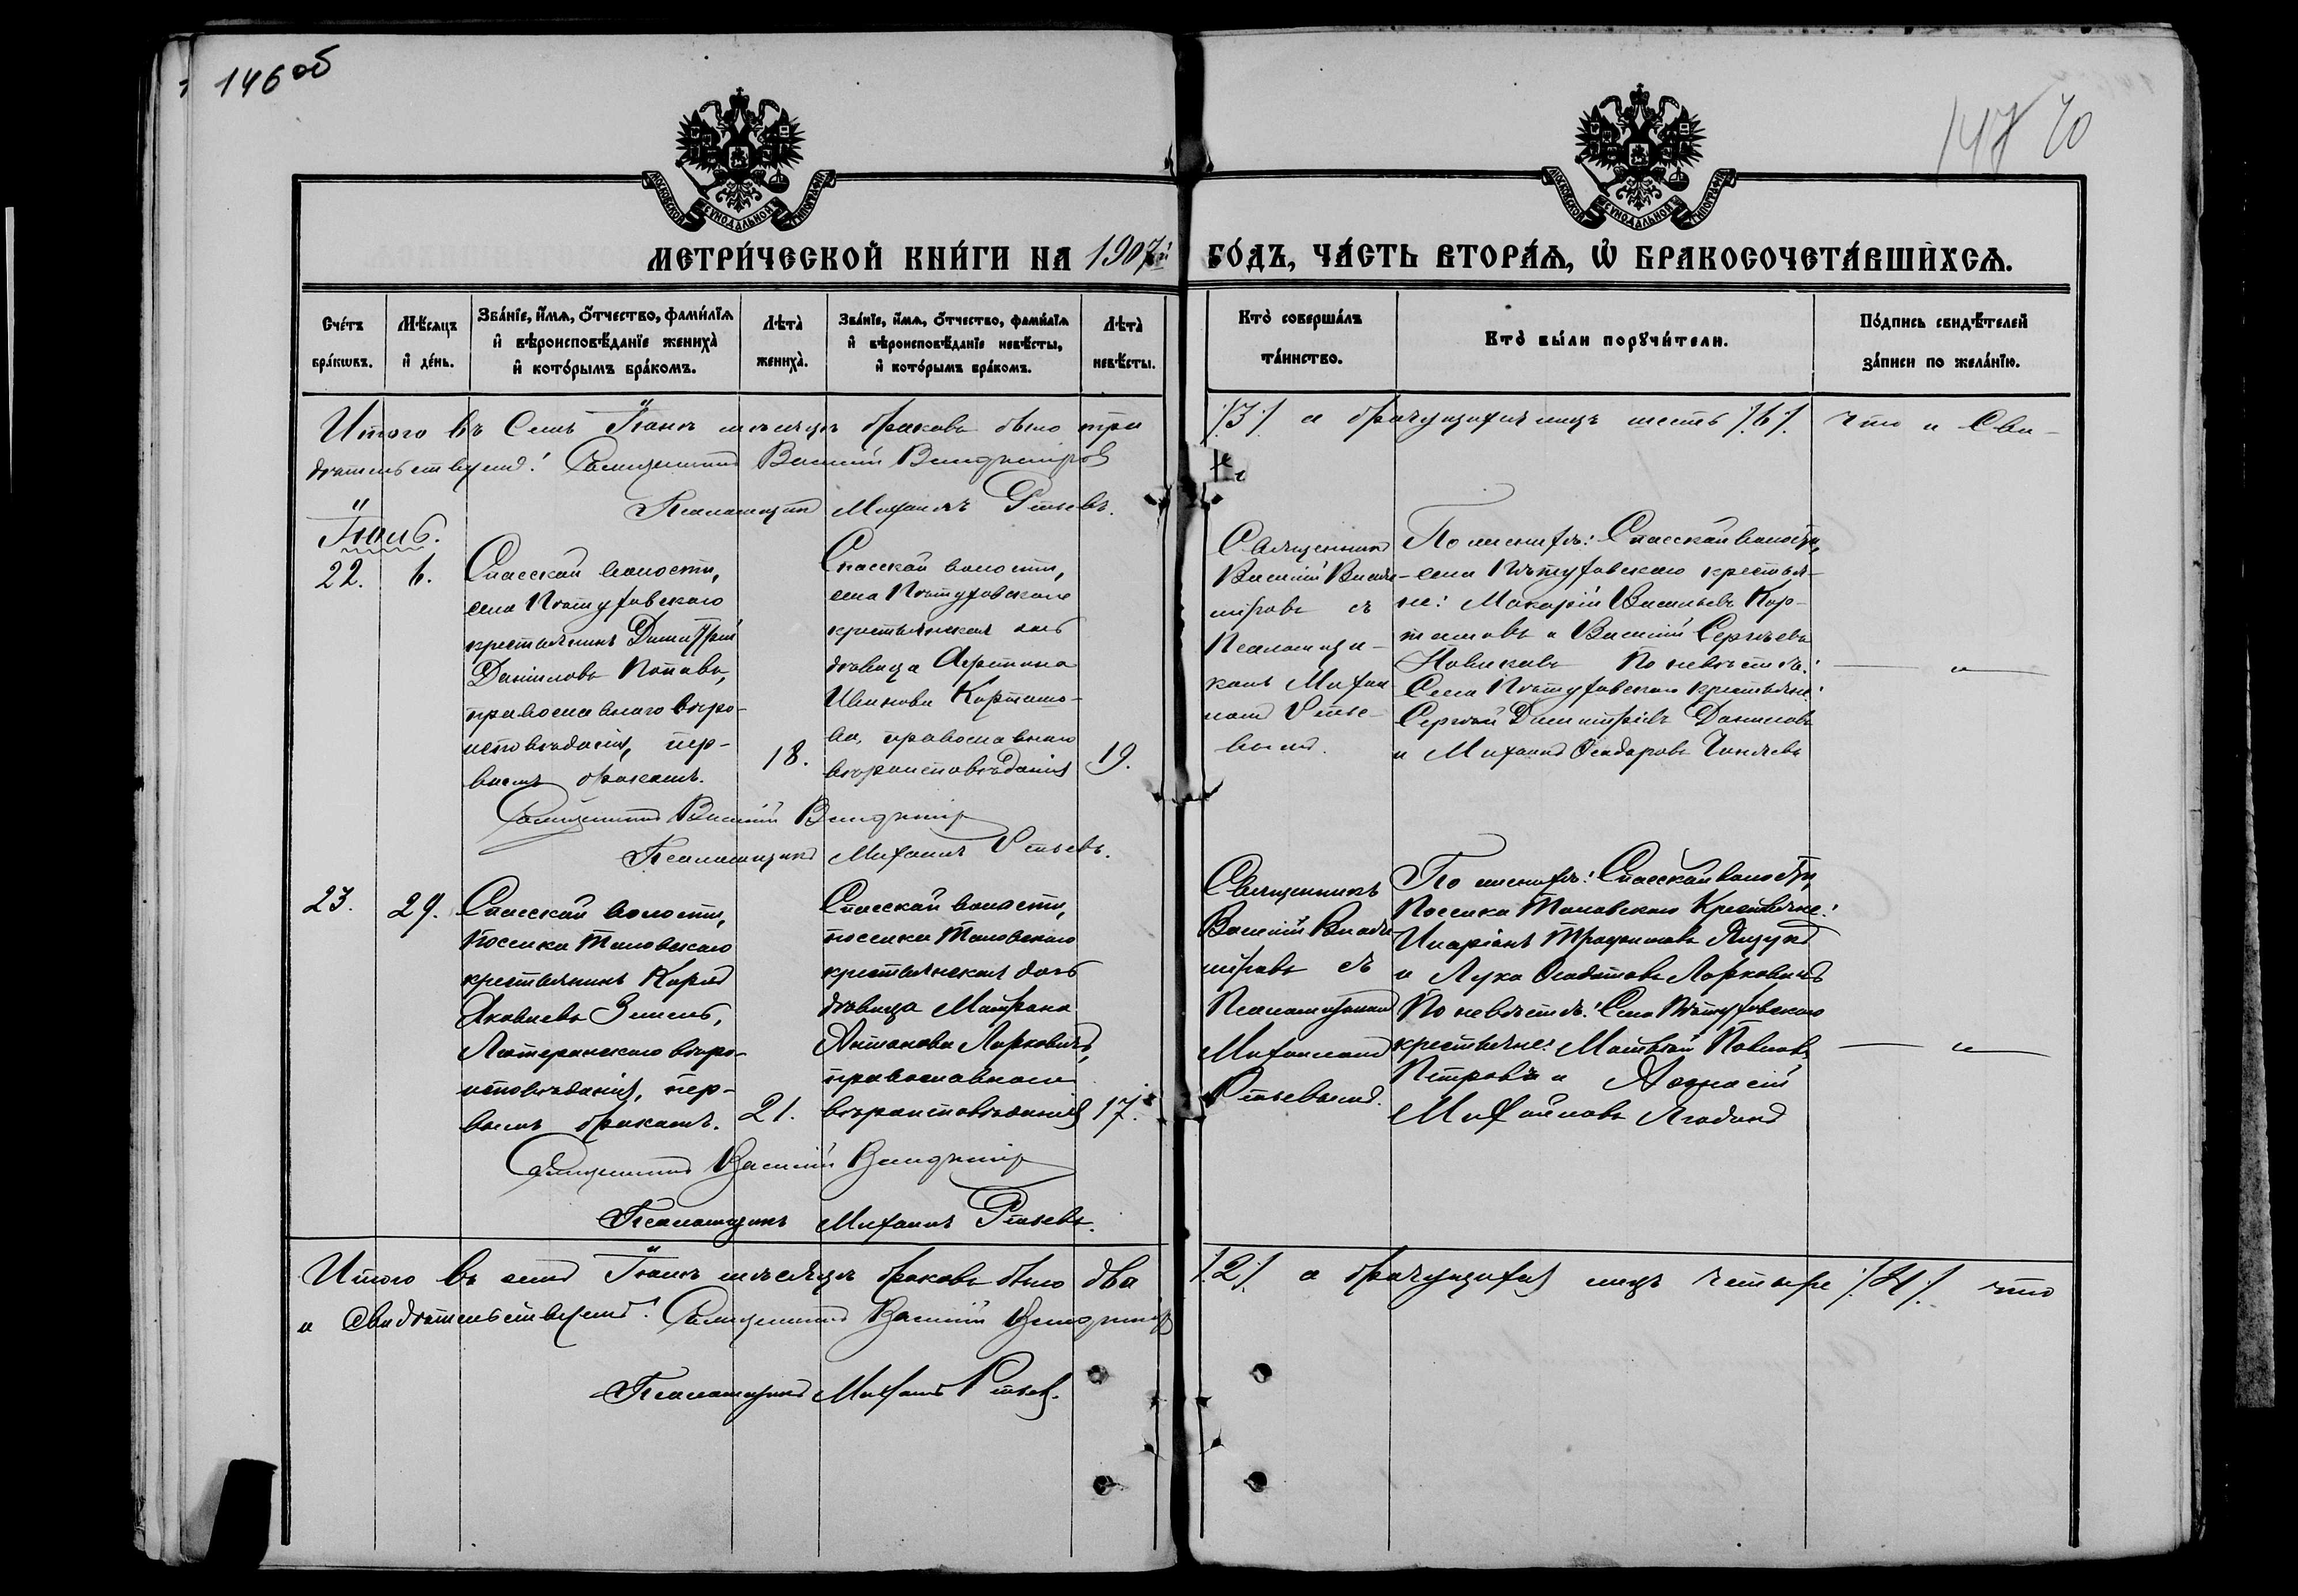 146 об
147 70
МОСКОВСКОЙ СѴНОДАЛЬНОЙ ТИПОГРАФІИ
МОСКОВСКОЙ СѴНОДАЛЬНОЙ ТИПОГРАФІИ
МЕТРИ́ЧЕСКОЙ КНИ́ГИ НА 1907й ГО́ДЪ, ЧА́СТЬ ВТОРА́Ѧ, Ѽ БРАКОСОЧЕТА́ВШИХСѦ.
Сче́тъ бра́кѡвъ.
Мѣ́сяцъ и҆ де́нь.
Зва́нїе, и҆́мѧ, ѻ҆́тчество, фами́лїѧ и҆ вѣроисповѣ́данїе жениха̀ и҆ кото́рымъ бра́комъ.
Лѣта̀ жениха̀.
Зва́нїе, и҆́мѧ, ѻ҆́тчество, фами́лїѧ и҆ вѣроисповѣ́данїе невѣ́сты, и҆ кото́рымъ бра́комъ.
Лѣта̀ невѣ́сты.
Кто̀ соверша́лъ та́инство.
Кто̀ бы́ли порꙋчи́тели.
По́дпись свидѣ́телей за́писи по жела́нїю.
Итого въ Семъ Іюнѣ мѣсяцѣ браковъ было три /3/ а брачущихся лицъ шесть /6/. Что и Сви-
дѣтельствуемъ: Священникъ Василій
Псаломщикъ Михаилъ
Іюль.
22.
6.
Спасской волости,
села
крестьянинъ Димитрій
Даніиловъ Поповъ,
православнаго вѣро-
исповѣданія, пер-
вымъ бракомъ.
18.
Спасской волости,
села
крестьянская дочь
дѣвица
Иванова Карташо-
ва, православнаго
вѣроисповѣданія
19.
Священникъ
Василій Влади-
міровъ съ
Псаломщи-
комъ Михаи-
ломъ
По женихѣ: Спасской волости,
села крестья-
не: Макарій Васильевъ Кар-
ташовъ и Василій Сергѣевъ
Новиковъ По невѣстѣ:
Села крестьяне:
Сергѣй Димитріевъ Даниловъ
и Михаилъ Ѳеодоровъ
— " —
Священникъ Василій
Псаломщикъ Михаилъ
23.
29.
Спасской волости,
поселка Таловскаго
крестьянинъ Карлъ
Яковлевъ
Лютеранскаго вѣро-
исповѣданія, пер-
вымъ бракомъ.
21.
Спасской волости,
поселка Таловскаго
крестьянская дочь
дѣвица Матрона
Антонова
православнаго
вѣроисповѣданія
17.
Священникъ
Василій Влади-
міровъ съ
Псаломщикомъ
Михаиломъ
По женихѣ: Спасской волости,
Поселка Таловскаго Крестьяне:
Иларіонъ Трофимовъ
и Лука
По невѣстѣ: Села
крестьяне: Матвѣй Павловъ
Петровъ и Аѳанасій
Михайловъ
— " —
Священникъ Василій
Псаломщикъ Михаилъ
Итого въ семъ Іюлѣ мѣсяцѣ браковъ было два /2/ а брачущихся лицъ четыре /4/. что
и свидѣтельствуемъ: Священникъ Василій
Псаломщикъ Михаилъ